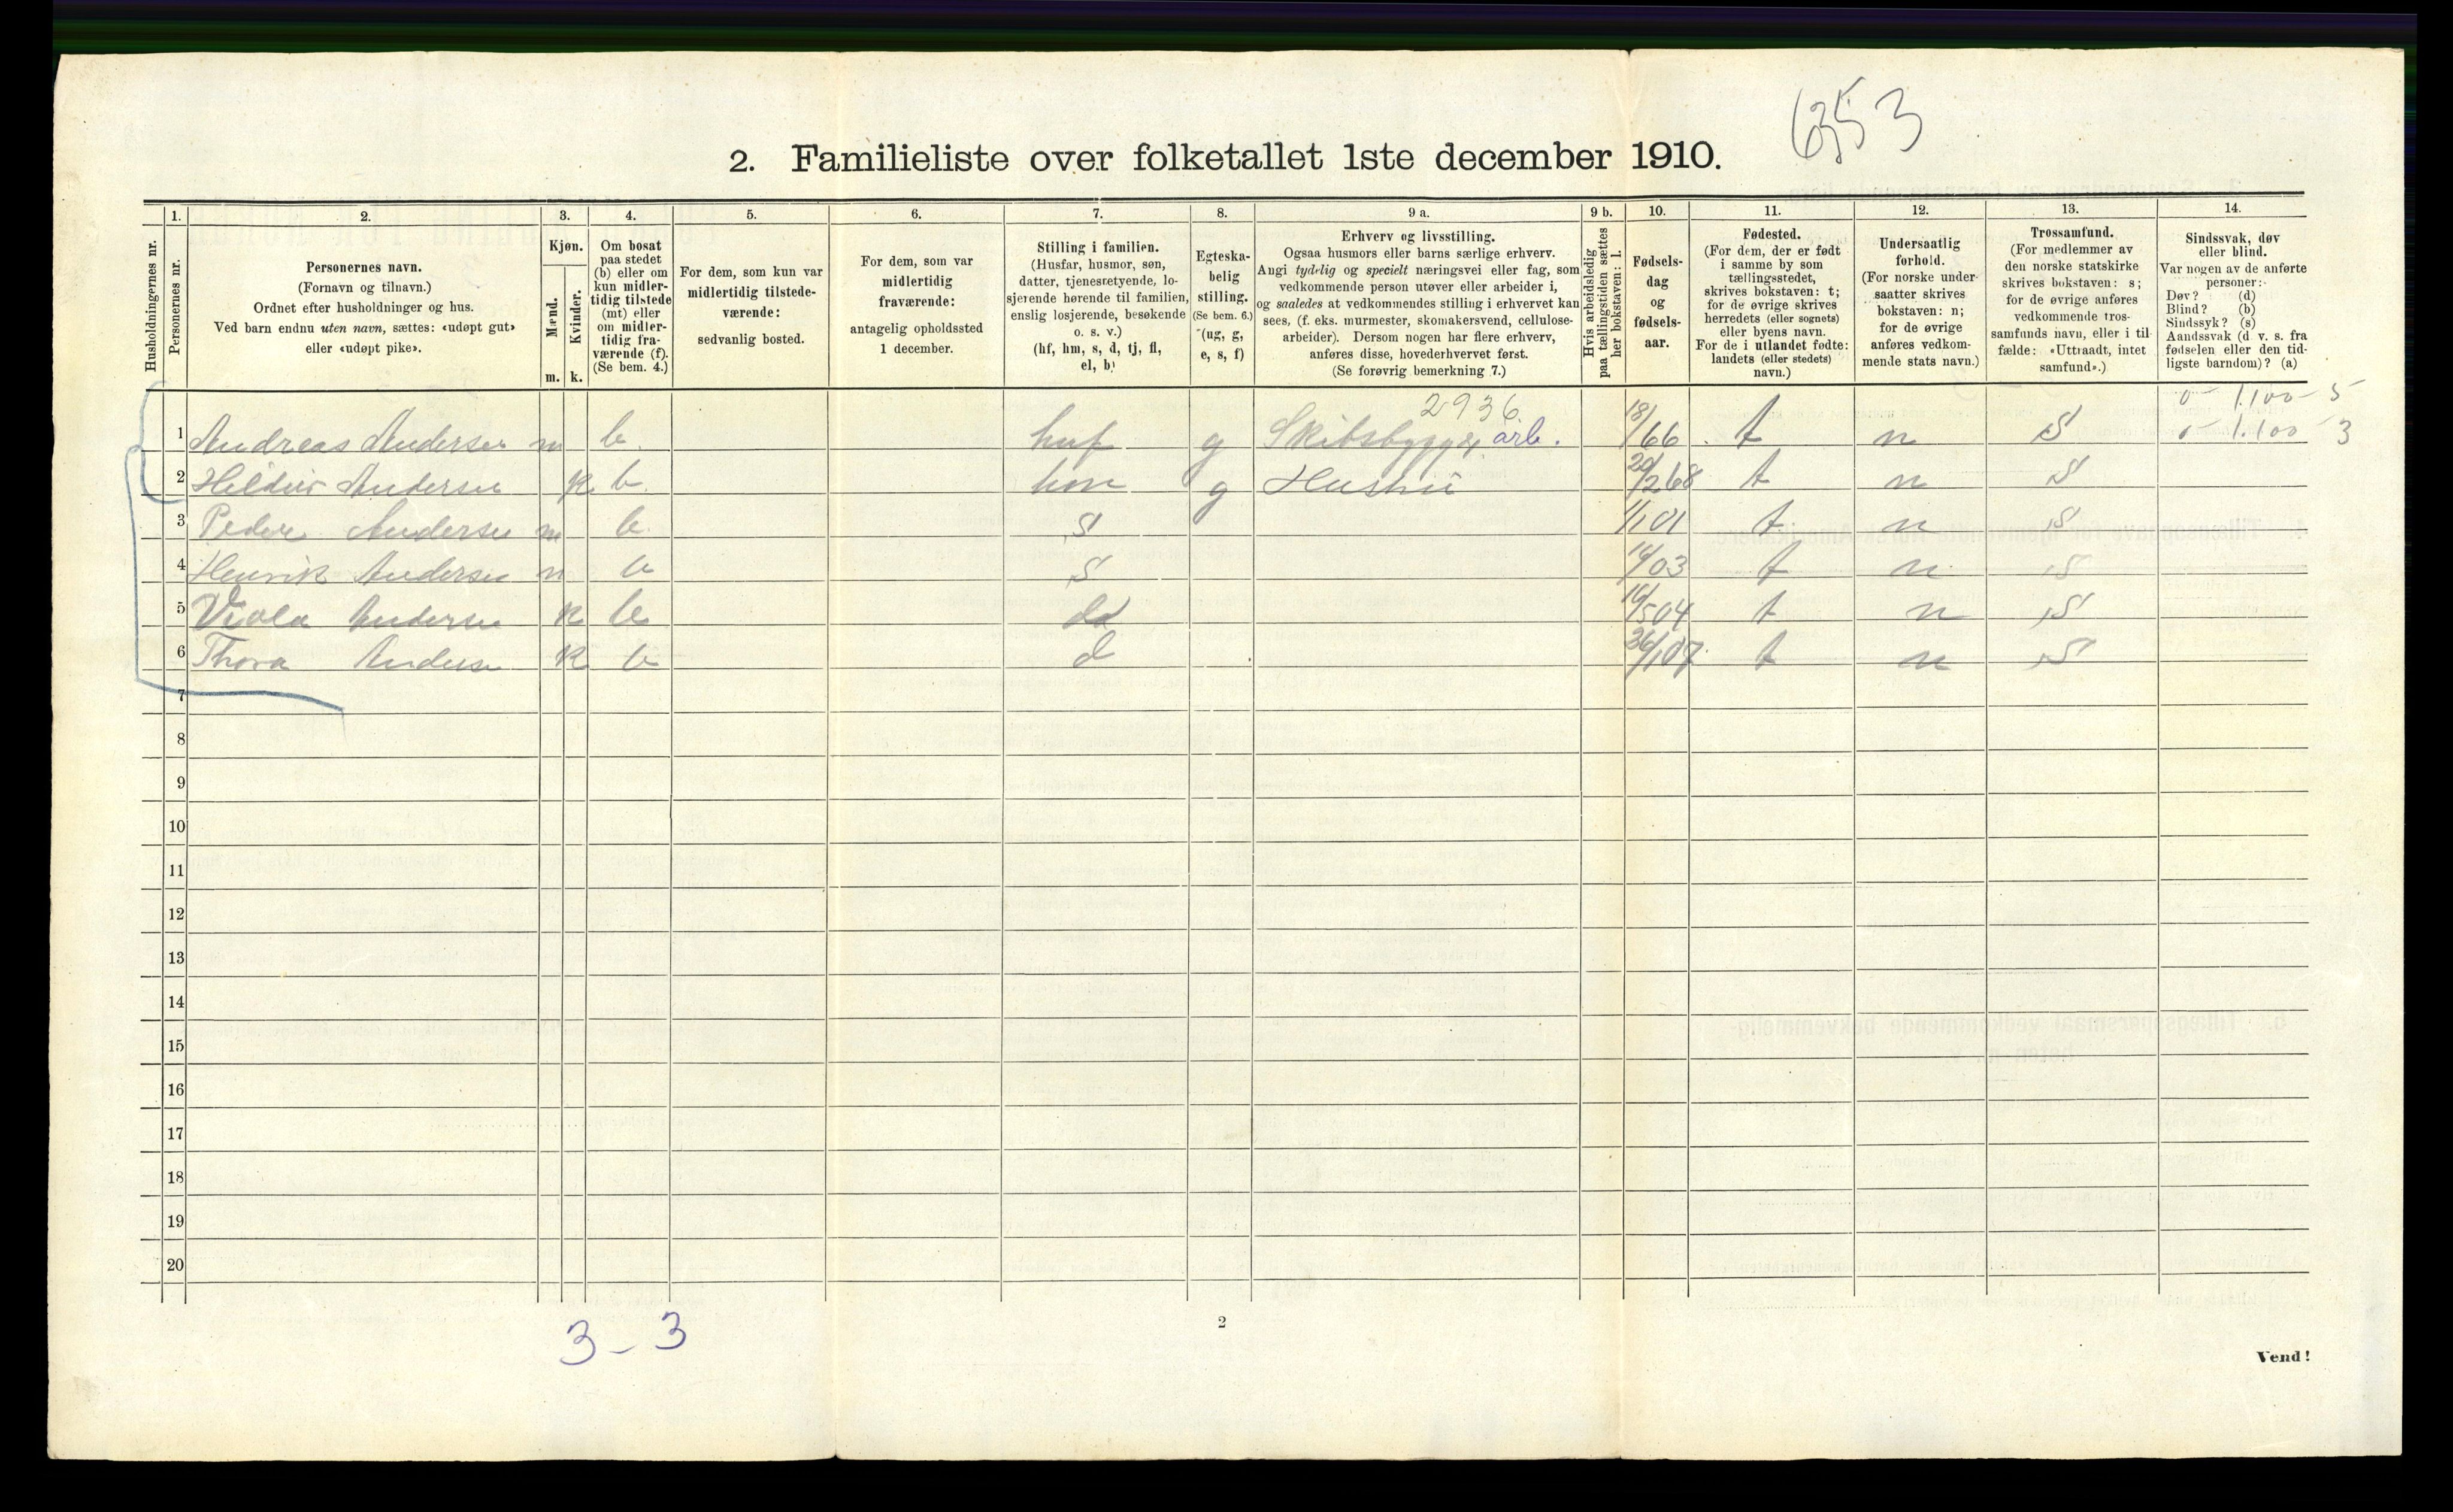 6353
2. Familieliste over folketallet 1ste december 1910.
Husholdningernes nr.
1. Personernes nr.
2. Personernes navn. (Fornavn og tilnavn.) Ordnet efter husholdninger og hus. Ved barn endnu uten navn, sættes: «udøpt gut» eller «udøpt pike».
3. Kjøn. Mænd. m. Kvinder. k.
4. Om bosat paa stedet (b) eller om kun midler-tidig tilstede (mt) eller om midler-tidig fra-værende (f). (Se bem. 4.)
5. For dem, som kun var midlertidig tilstede-værende: sedvanlig bosted.
6. For dem, som var midlertidig fraværende: antagelig opholdssted 1 december.
7. Stilling i familien. (Husfar, husmor, søn, datter, tjenesretyende, lo-sjerende hørende til familien, enslig losjerende, besøkende o. s. v.) (hf, hm, s, d, tj, fl, el, b)
8. Egteska-belig stilling. (Se bem. 6.) (ug, g, e, s, f)
9 a. Erhverv og livsstilling. Ogsaa husmors eller barns særlige erhverv. Angi tydelig og specielt næringsvei eller fag, som vedkommende person utøver eller arbeider i, og saaledes at vedkommendes stilling i erhvervet kan sees, (f. eks. murmester, skomakersvend, cellulose-arbeider). Dersom nogen har flere erhverv, anføres disse, hovederhvervet først. (Se forøvrig bemerkning 7.)
9 b. Hvis arbeidsledig paa tællingstiden sættes her bokstaven: l.
10. Fødsels-dag og fødsels-aar.
11. Fødested. (For dem, der er født i samme by som tællingsstedet, skrives bokstaven: t; for de øvrige skrives herredets (eller sognets) eller byens navn. For de i utlandet fødte: landets (eller stedets) navn.)
12. Undersaatlig forhold. (For norske under-saatter skrives bokstaven: n; for de øvrige anføres vedkom-mende stats navn.)
13. Trossamfund. (For medlemmer av den norske statskirke skrives bokstaven: s; for de øvrige anføres vedkommende tros-samfunds navn, eller i til-fælde: «Uttraadt, intet samfund».)
14. Sindssvak, døv eller blind. Var nogen av de anførte personer: Døv? (d) Blind? (b) Sindssyk? (s) Aandssvak (d v. s. fra fødselen eller den tid-ligste barndom)? (a)
2936 0 - 1.100 - 5
1 Andreas Andersen m b. huf g Skibsbygger arb. 18/ /66 t n S 0 - 1.100 3
2 Hildur Andersen k b. hm g Hustru 20/2 68 t n S
3 Peder Andersen m b. S 1/1 01 t n S
4 Henrik Andersen m b S 03 t n S
5 Viola Andersen k b d 16/5 04 t n S
6 Thora Andersen k b d 07 t n S
7
8
9
10
11
12
13
14
15
16
17
18
19
20
3 - 3
2
Vend!